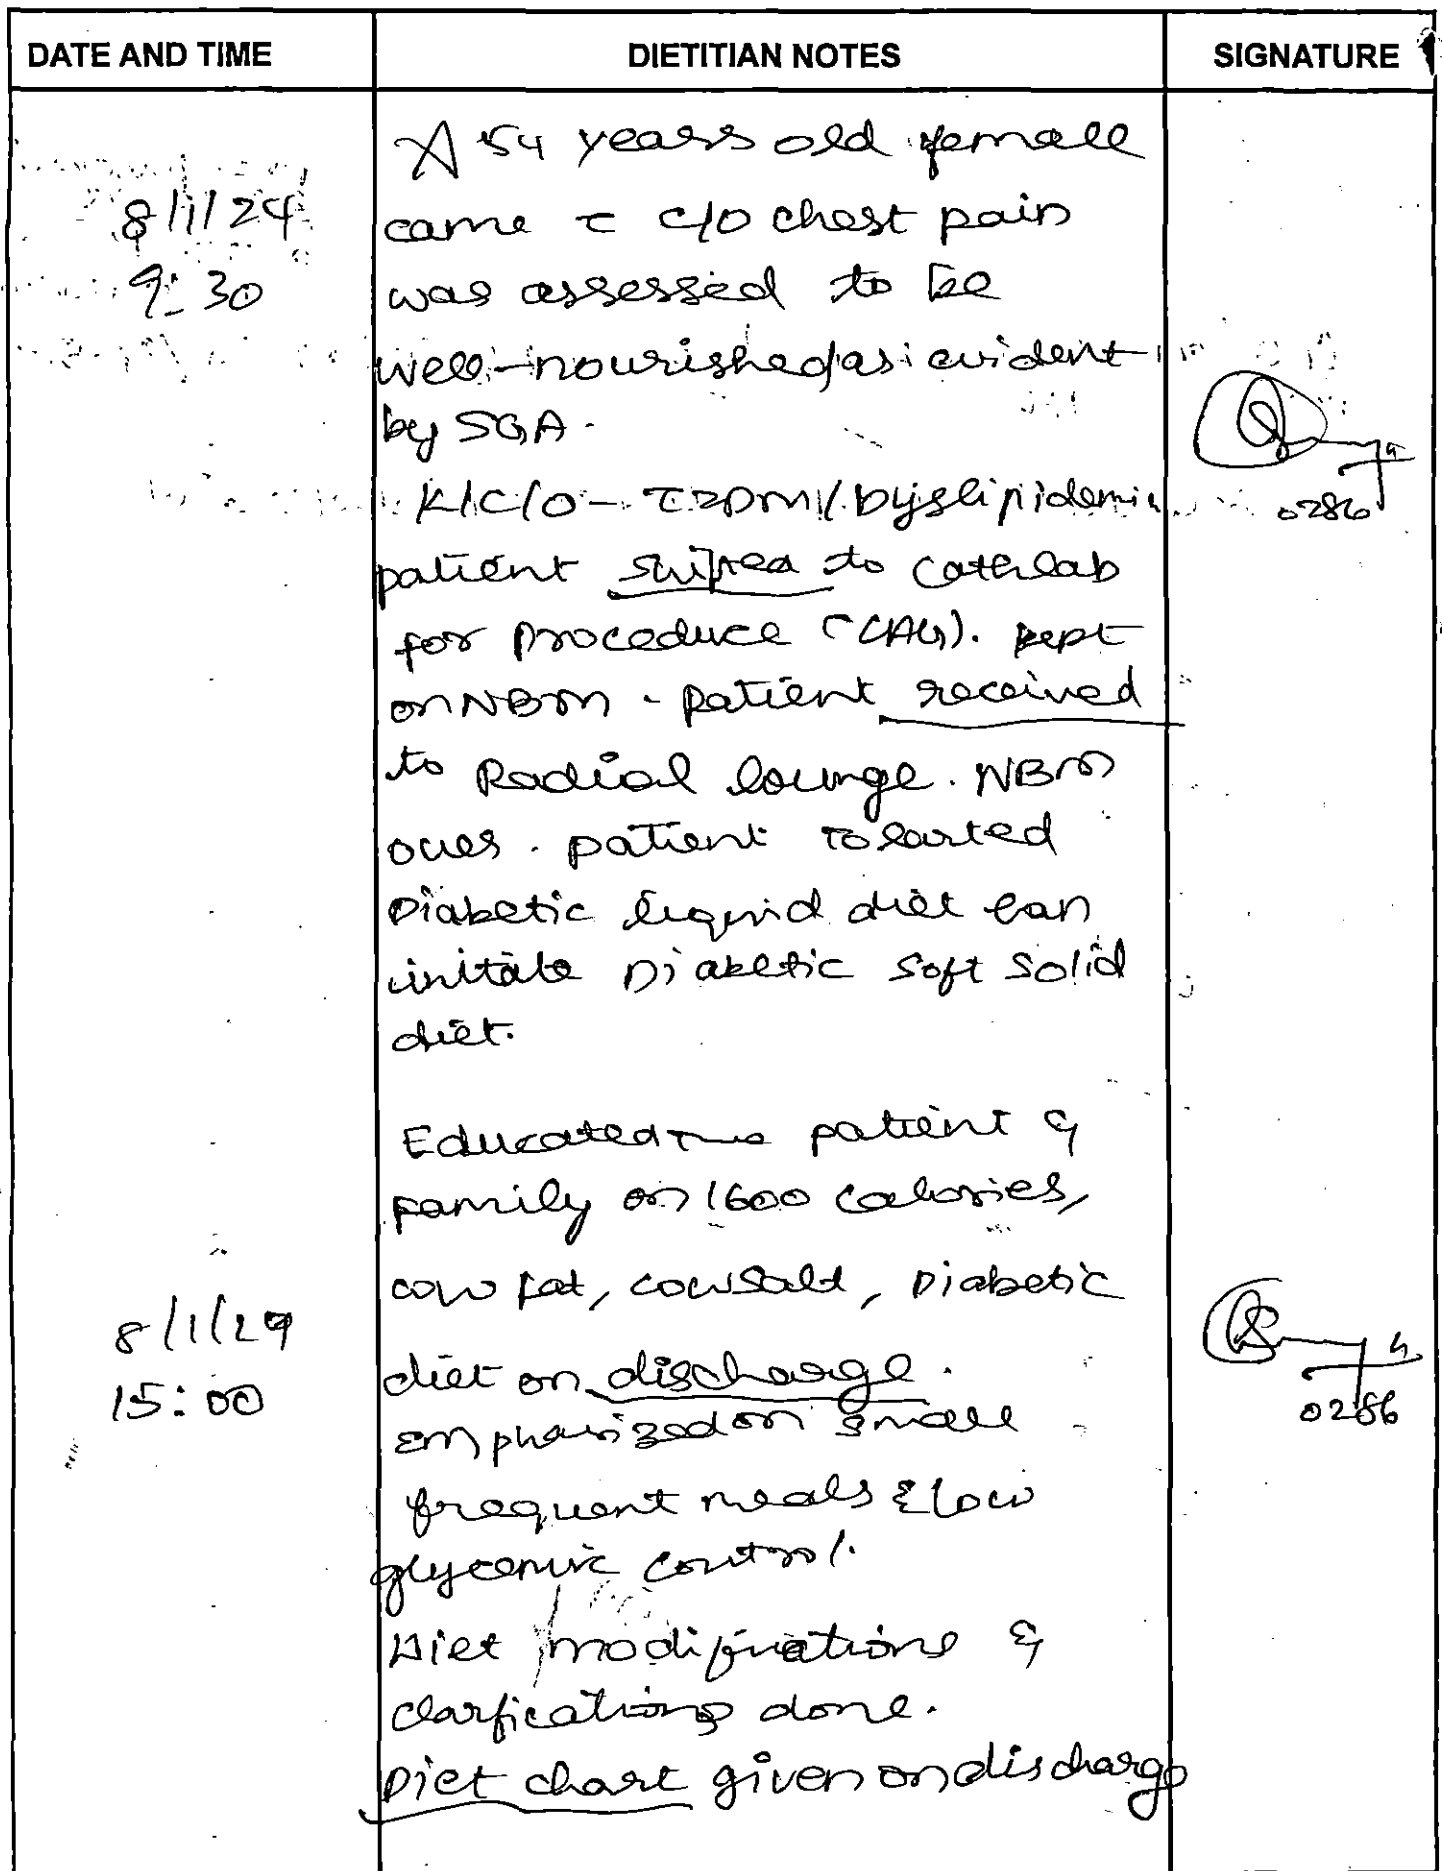 DATE AND TIME DIETITIAN NOTES SIGNATURE
A 54 years old female
8/1/24 came c c/o chest pain
9:30 was assessed to be
well-nourished as evident
by SGA.
K/C/O - T2DM / Dyslipidemia
0286
patient to cathlab
for proceduce (CAG). kept
on NBM. patient received
to Radial lounge. NBM
over. patient tolarted
Diabetic liquid diet can
initate Diabetic soft solid
diet.
Educated patient &
family on 1600 calories,
low fat, low salt, Diabetic
8/1/24
diet on discharge.
15:00 0286
emphasized on small
frequent meals & low
glycemic control.
Diet modifications &
clarfications done.
Diet chart given on discharge